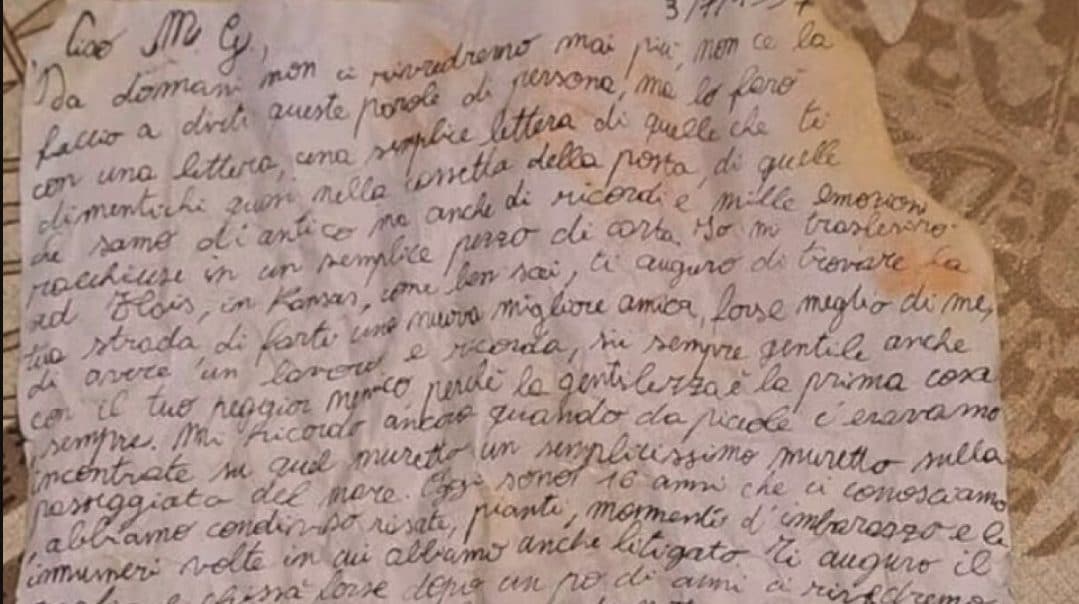 3/1/1
Ciao M. G.,
Da domani non ci rivedremo mai più, non ce la
faccio a dirti queste parole di persona, ma lo farò
con una lettera, una semplice lettera di quelle che ti
dimentichi quasi nella cassetta della posta, di quelle
che sanno di antico ma anche di ricordi e mille emozioni
racchiuse in un semplice pezzo di carta. Io mi trasferirò
ad in Kansas, come ben sai, ti auguro di trovare la
tua strada, di farti una nuova migliore amica, forse meglio di me,
di avere un lavoro e ricorda, sii sempre gentile anche
con il tuo peggior nemico, perchè la gentilezza è la prima cosa
sempre. Mi ricordo ancora quando da piccole c'eravamo
incontrate su quel muretto un semplicissimo muretto sulla
passeggiata del mare. Oggi sono 16 anni che ci conosciamo
, abbiamo condiviso risate, pianti, momenti d'imbarazzo e le
innumeri volte in cui abbiamo anche litigato. Ti auguro il
e chissà forse dopo un po di anni ci rivedremo